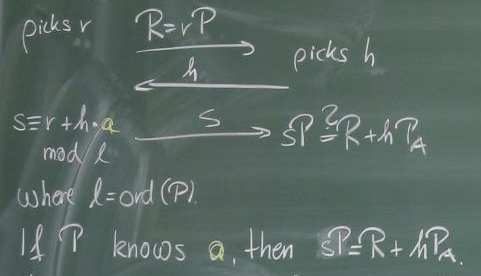 picks r R=rP
h picks h
s≡r+h·a S sP ?= R+hP_A
mod l
where l=ord(P).
If P knows a, then sP=R+hP_A.